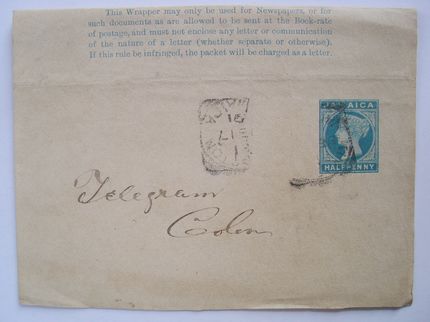 This Wrapper may only be used for Newspapers, or for
such documents as are allowed to be sent at the Book-rate
of postage, and must not enclose any letter or communication
of the nature of a letter (whether separate or otherwise).
If this rule be infringed, the packet will be charged as a letter.
JAMAICA
HALFPENNY
Telegram
Colon